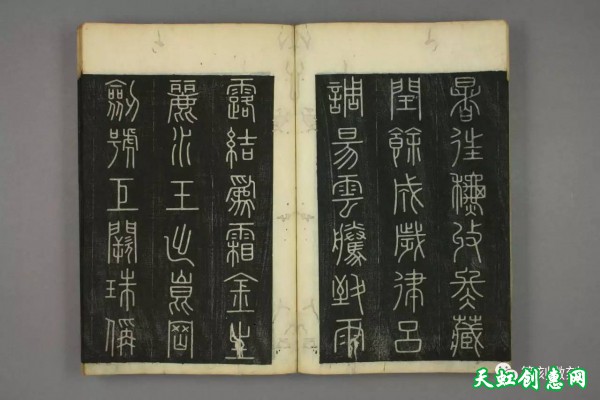 暑往秋收冬藏
閏餘成歲律呂
調昜雲騰致雨
露結爲霜金生
麗水玉出崑岡
劍號巨闕珠稱
天虹创惠网